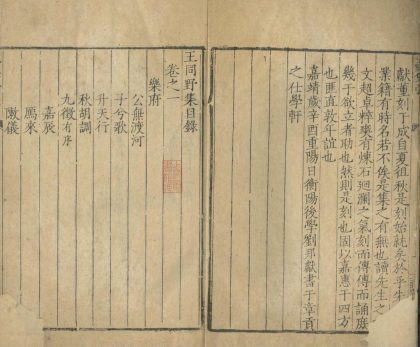 獻董刻丁成自夏徂秋是刻始就矣於乎先
業籍有時名若不俟是集之有無也讀先生之
文超卓粹奧有煉石廻瀾之氣刻而傳傳而誦庶
幾于欲立者助也然則是刻也固以嘉惠于四方
也匪直敦年誼也
嘉靖歲辛酉重陽日衡陽後學劉那獻書于章貢
之仕學軒
王同野集目錄
卷之一
樂府
公無渡河
子兮歌
升天行
秋胡調
九徵有序
嘉辰
鴈來